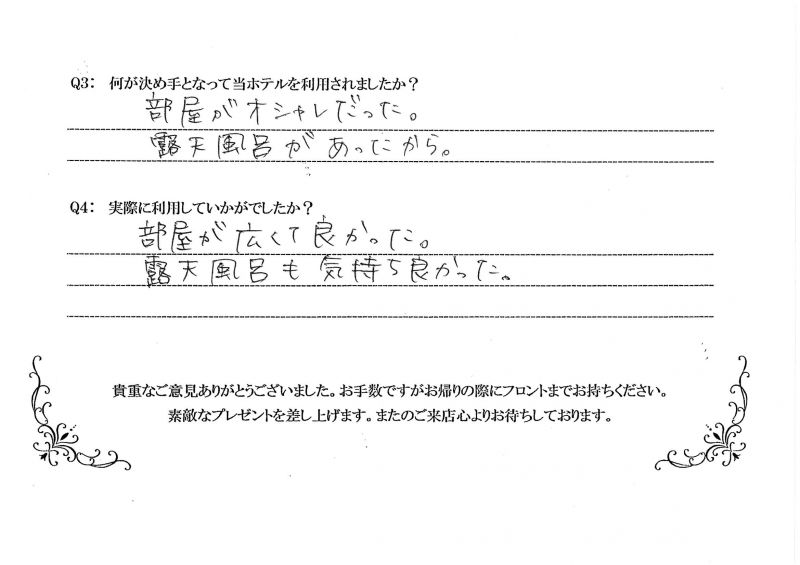 Q3： 何が決め手となって当ホテルを利用されましたか？
部屋がオシャレだった。
露天風呂があったから。
Q4： 実際に利用していかがでしたか？
部屋が広くて良かった。
露天風呂も気持ち良かった。
貴重なご意見ありがとうございました。お手数ですがお帰りの際にフロントまでお持ちください。
素敵なプレゼントを差し上げます。またのご来店心よりお待ちしております。